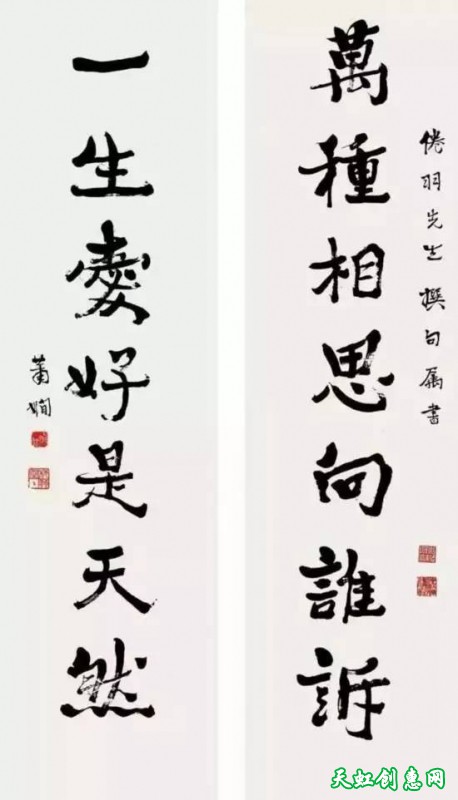 倦羽先生撰句属書
萬種相思向誰訴
一生愛好是天然
蕭嫻
天虹创惠网